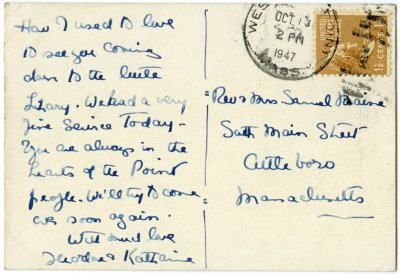 How I used to love
to see you coming
down to the little
Library. We had a very
fine Service Today-
You are always in the
hearts of the Point
people. We'll try to come
over soon again.
With much love
Theodore & Katharine
WES
OCT 13
2 PM
1947
MASS.
1½ CENTS
Rev & Mrs Samuel
South Main Street
Attleboro
Massachusetts